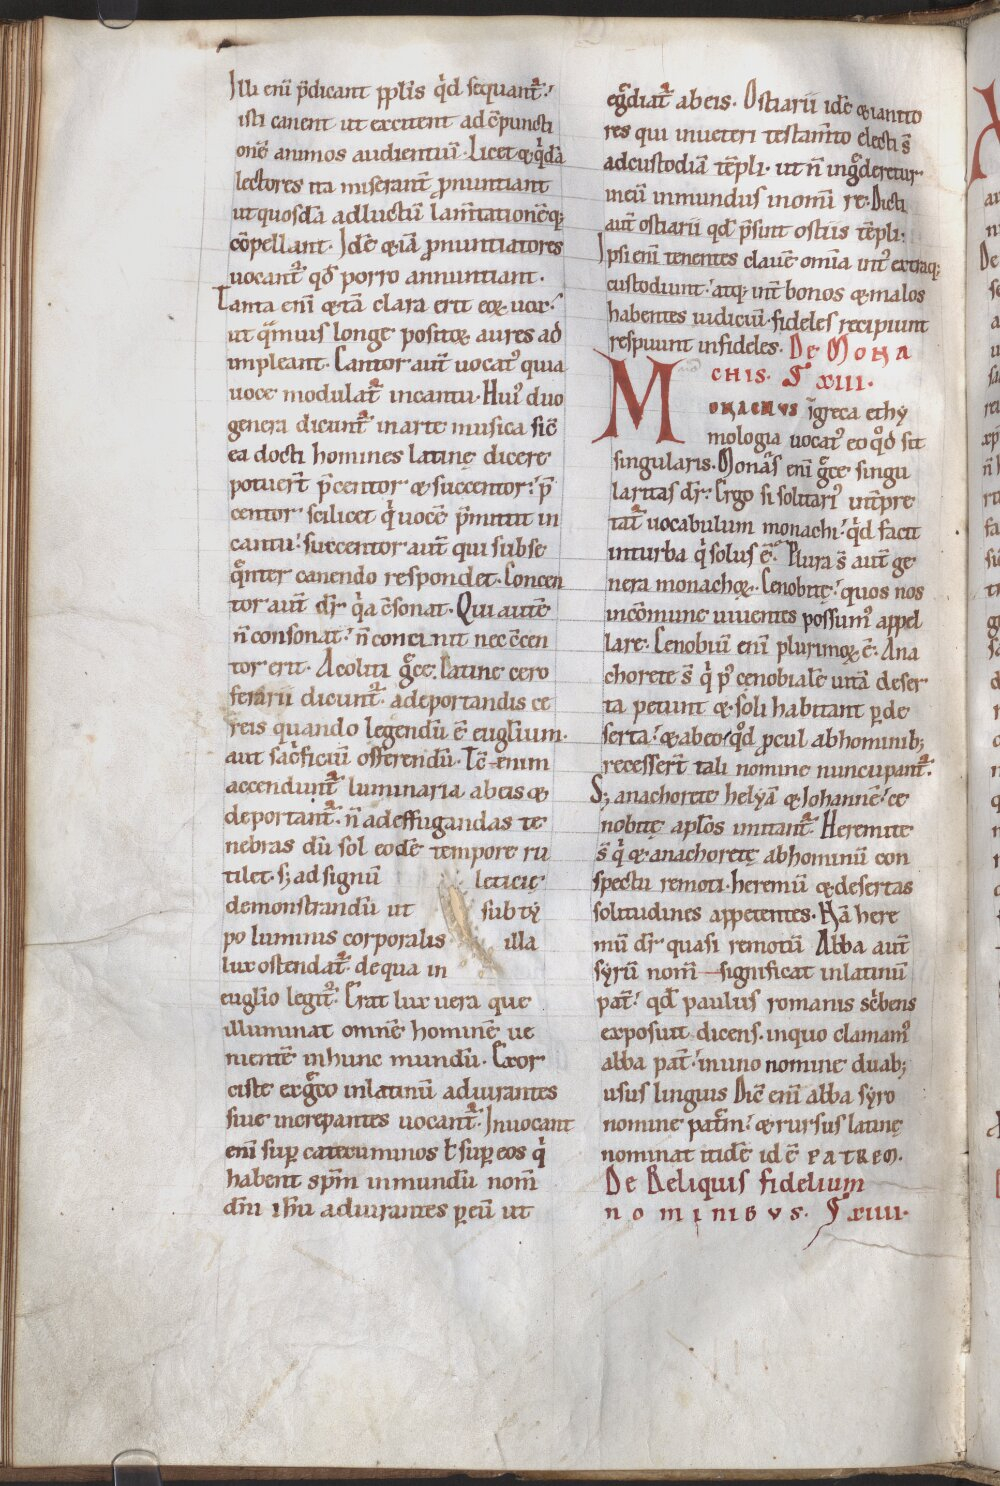 Illi eni᷒ p̄dicant pplis qͥd sequant᷑.
isti canent ut excitent ad cōpuncti
onē animos audientiū. Licet & qͥdā
lectores ita miserant᷑ ꝓnuntiant
ut quosdā ad luctū lam̄tationēq;
cōpellant. Idē & iā ꝓnuntiatores
uocant᷑ qđ porro annuntiant.
Tanta enī & tā clara erit eoꝝ uox.
ut qͣmuis longe positoꝝ aures ad
impleant. Cantor aut̄ uocat᷑ quia
uoce modulat᷑ in cantu. Hui᷒ duo
genera dicunt᷑ in arte musica sic̄
ea docti homines latinę dicere
potuer̄t p̄centor & succentor. p̄
centor scilicet qͥ uocē p̄mittit in
cantu. succentor aut̄ qui subse
qͣnter canendo respondet. Concen
tor aut̄ dr̄ qͥa c̄sonat. Qui autē
n̄ consonat. n̄ concinit nec c̄cen
tor erit. Acoliti gͣce. Latine cero
ferarii dicunt᷑. a deportandis ce
reis quando legendū ē euglium.
aut sac̊ficiū offerendū. Tc̄ enim
accendunt᷑ luminaria ab eis &
deportant᷑. n̄ ad effugandas te
nebras dū sol eodē tempore ru
tilet. s; ad signū leticię
demonstrandū ut sub ty
po luminis corporalis illa
lux ostendat᷑. de qua in
euglio legit᷑. Erat lux uera que
illuminat omnē hominē ue
nientē in hunc mundū. Exor
ciste ex gͣco in latinū adiurantes
siue increpantes uocant᷑. Inuocant
enī suꝑ caticuminos ł suꝑ eos qͥ
habent spm̄ inmundū nom̄
dn̄i ihu adiurantes ꝑ eū ut
egͣdiat᷑ ab eis. Ostiarii idē & ianito
res qui in ueteri testam̄to electi s̄
ad custodiā tēpli. ut n̄ ingͣderetur
in eū inmundus in omī re. Dicti
aut̄ ostiarii qđ p̄sunt ostiis tēpli.
Ipsi enī tenentes clauē omīa int᷑ extraq;
custodiunt. atq; int̄ bonos & malos
habentes iudiciū. fideles recipiunt
respuunt infideles. De Mona
chis. ₷ xiii.
Monachus igreca ethy
mologia uocat᷑ eo qđ sit
singularis. Monas̄ enī gͣce singu
laritas dr̄. Ergo si solitari᷒ int̄pre
tat᷑ uocabulum monachi. qͥd facit
in turba qͥ solus ē. Plura s̄ aut̄ ge
nera monachoꝝ. Cenobitę. quos nos
in cōmune uiuentes possum᷒ appel
lare. Cenobiū enī plurimoꝝ ē. Ana
chorete s̄ qͥ p᷒ cenobialē uitā deser
ta petunt & soli habitant ꝑ de
serta. & ab eo qđ ꝓcul ab hominib;
recesser̄t tali nomine nuncupant᷑.
S; anachorete helyā & Iohannē. ce
nobitę aplos imitant᷑. Heremite
s̄ qͥ & anachoretę ab hominū con
spectu remoti. heremū & desertas
solitudines appetentes. Nā here
mū dr̄ quasi remotū Abba aut̄
syrū nom̄ significat in latinū
pat̄. qđ paulus romanis sc̄bens
exposuit dicens. in quo clamam᷒
abba pat̄. in uno nomine duab;
usus linguis Dic̄ enī abba syro
nomine pat̄m. & rursus latinę
nominat itidē id ē PATREM.
De Reliquis fidelium
nominibus. ₷ xiiii.